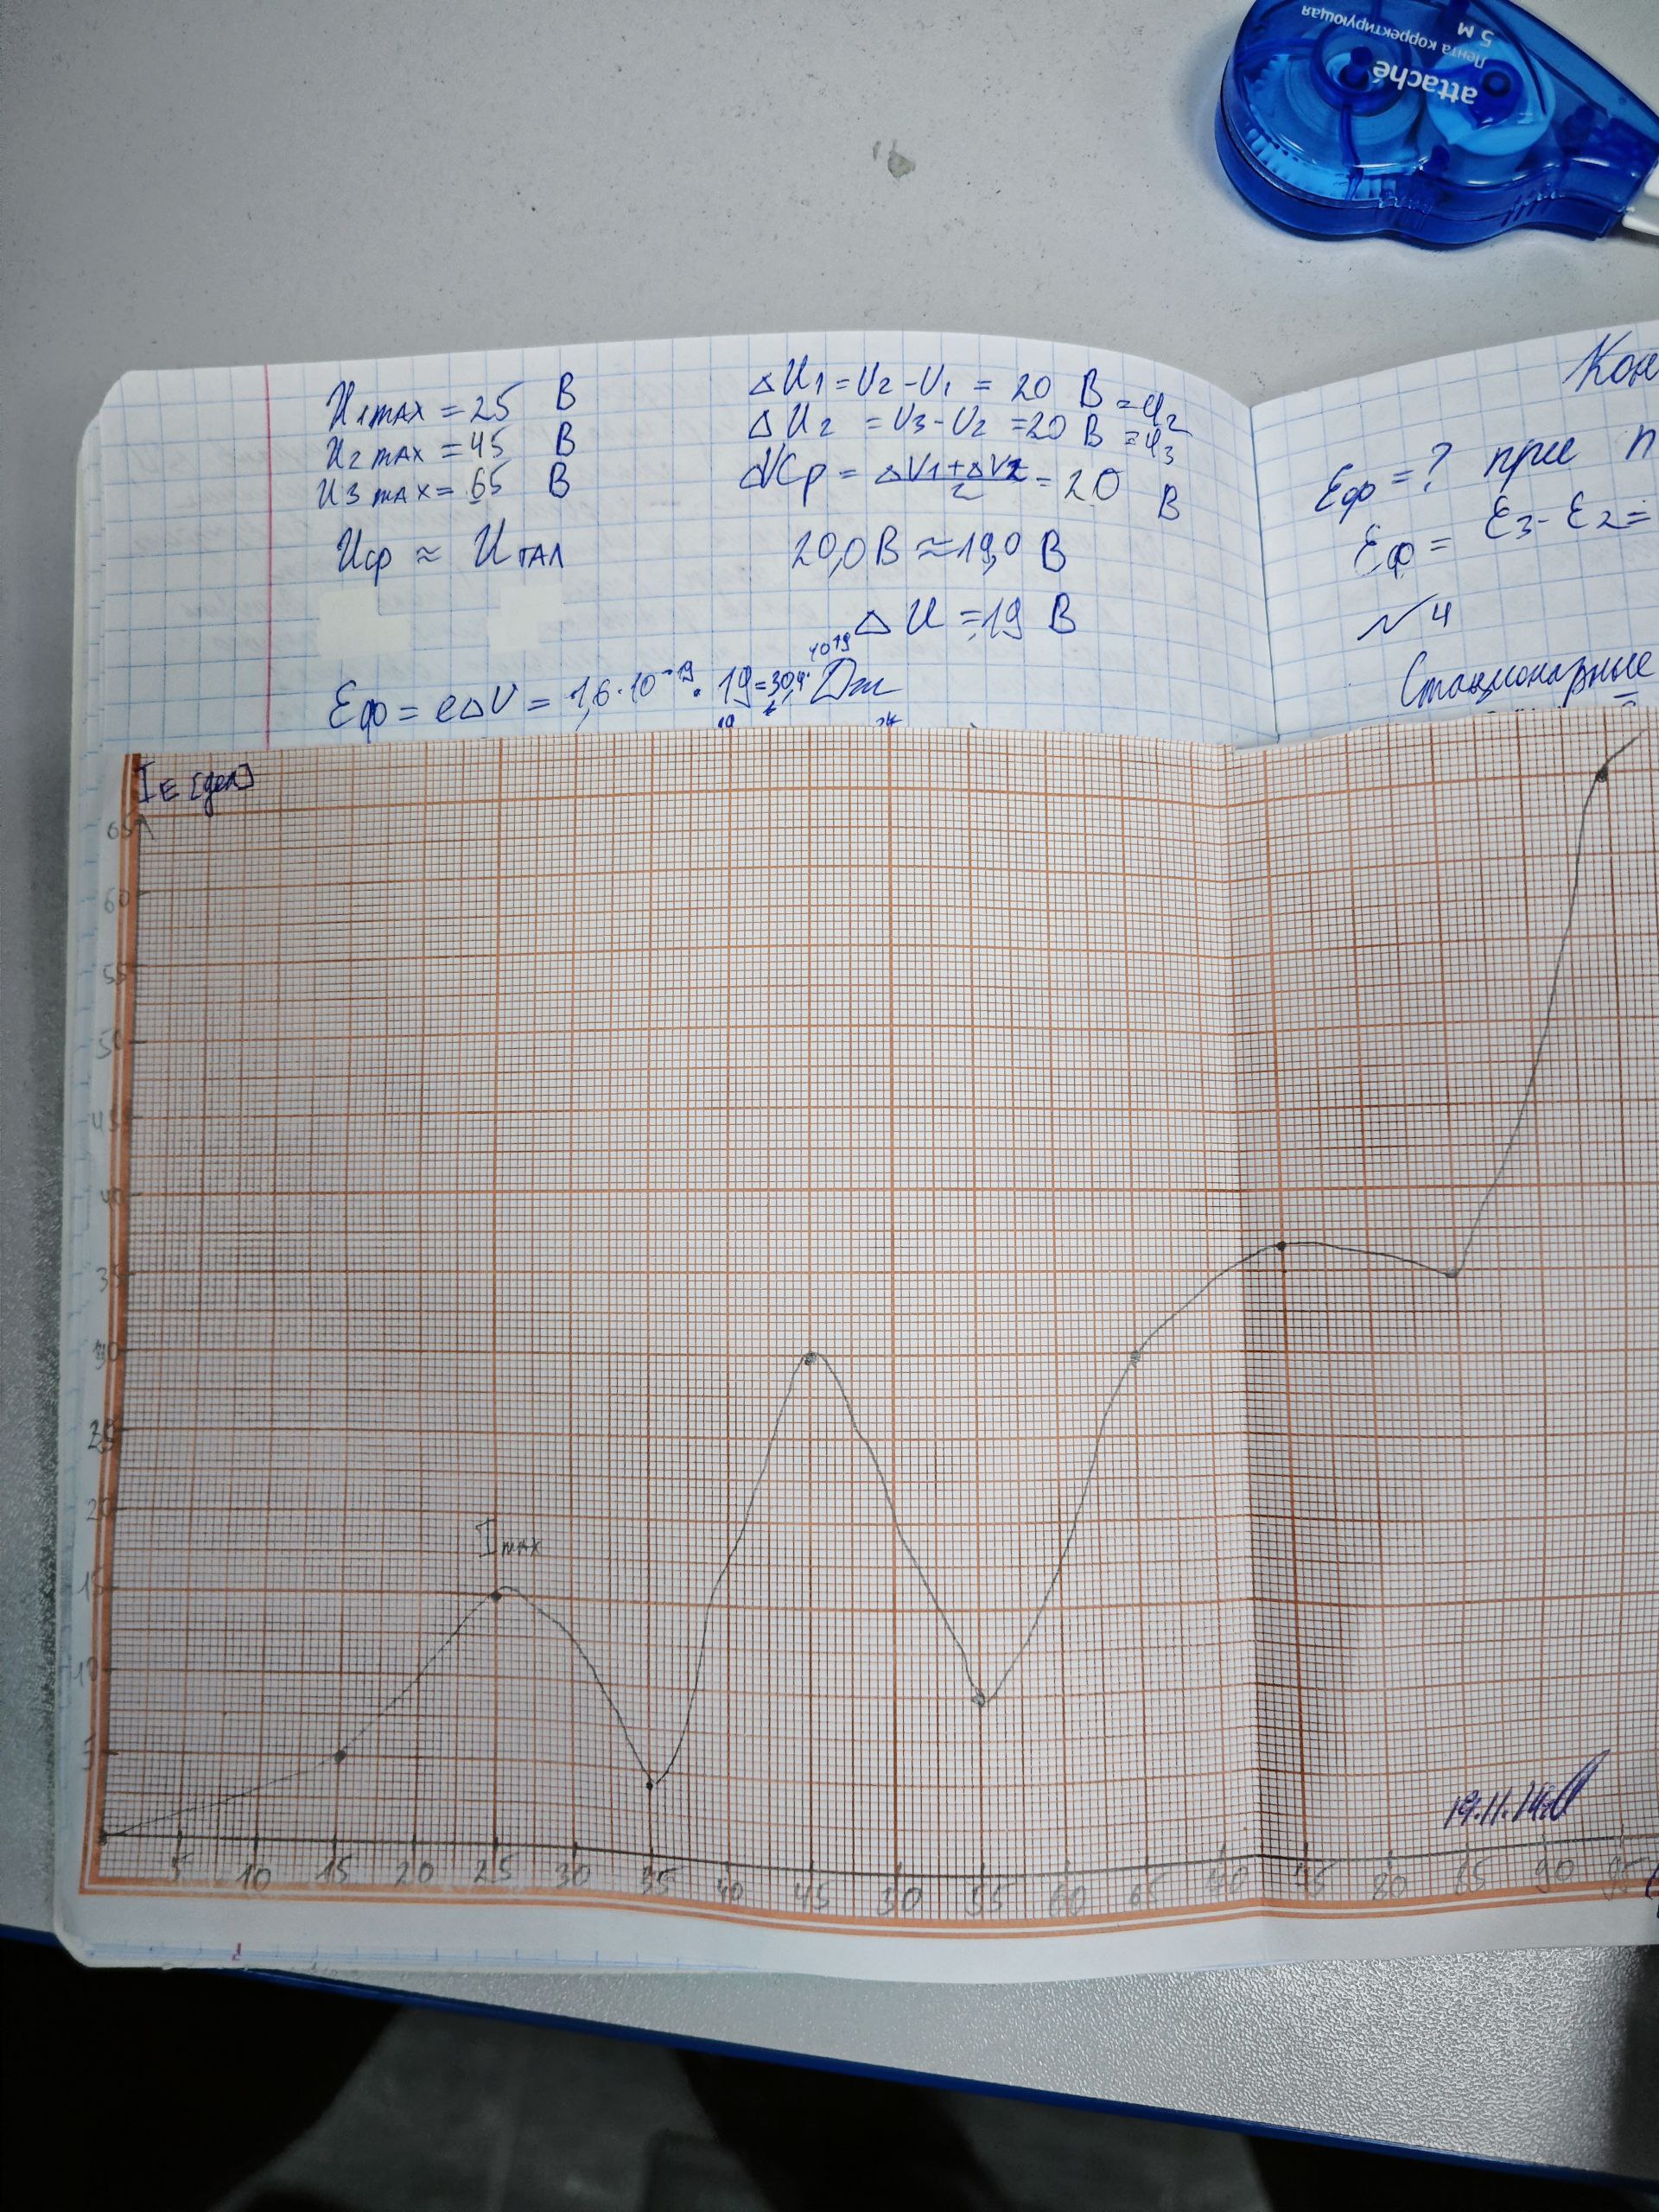 Лента корректирующая
5 м
attaché
U1max = 25 В
U2max = 45 В
U3max = 65 В
Uср ≈ Uтал
ΔU1 = U2 - U1 = 20 В = φ2
ΔU2 = U3 - U2 = 20 В = φ3
= 20 В
20,0 В ≈ 19,0 В
ΔU = 19 В
Eφ = eΔU = 1,6·10⁻¹⁹ · 19 = 30,4·
Кон
Eφ = ? при n
Eφ = E3 - E2 =
№4
Стационарные
IE [дел]
65
60
55
50
45
40
35
30
25
20
15
10
5
Imax
5 10 15 20 25 30 35 40 45 50 55 60 65 75 80 85 90 95